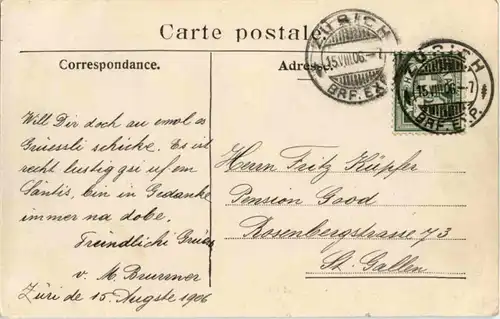 Carte postale
Correspondance.
Adresse.
ZÜRICH
15.VIII.06.-7
BRF. EXP.
ZÜRICH
15.VIII.06.-7
BRF. EXP.
Will Dir doch au emol es
Grüessli schicke. Es ist
recht lustig gsi uf em
Säntis, bin in Gedanke
immer na dobe.
Freindlichi Grüess
v. M. Brunner
Züri de 15. Augste 1906
Herrn Fritz Küpfer
Pension Good
Rosenbergstrasse 73
St. Gallen